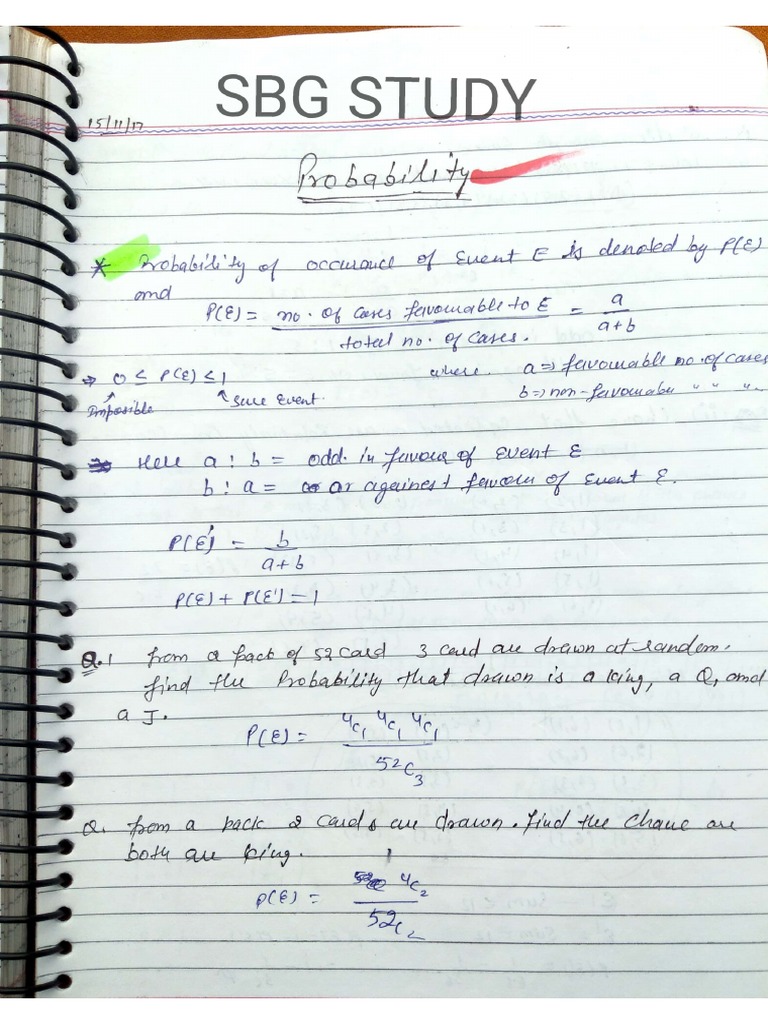 SBG STUDY
15/11/17
Probability
* Probability of occurance of Event E is denoted by P(E)
and
P(E) = no. of cases favourable to E / total no. of cases. = a / a+b
where. a => favourable no. of cases
b => non-favourable " " "
=> 0 ≤ P(E) ≤ 1
Impossible Sure Event.
=> Here a : b = odd. in favour of event E
b : a = or against favour of Event E.
P(E') = b / a+b
P(E) + P(E') = 1
Q.1 from a pack of 52 card 3 card are drawn at random.
find the Probability that drawn is a king, a Q, and
a J.
P(E) = 4C1 4C1 4C1 / 52C3
Q. from a pack 2 cards are drawn. find the chance are
both are king.
P(E) = 4C2 / 52C2